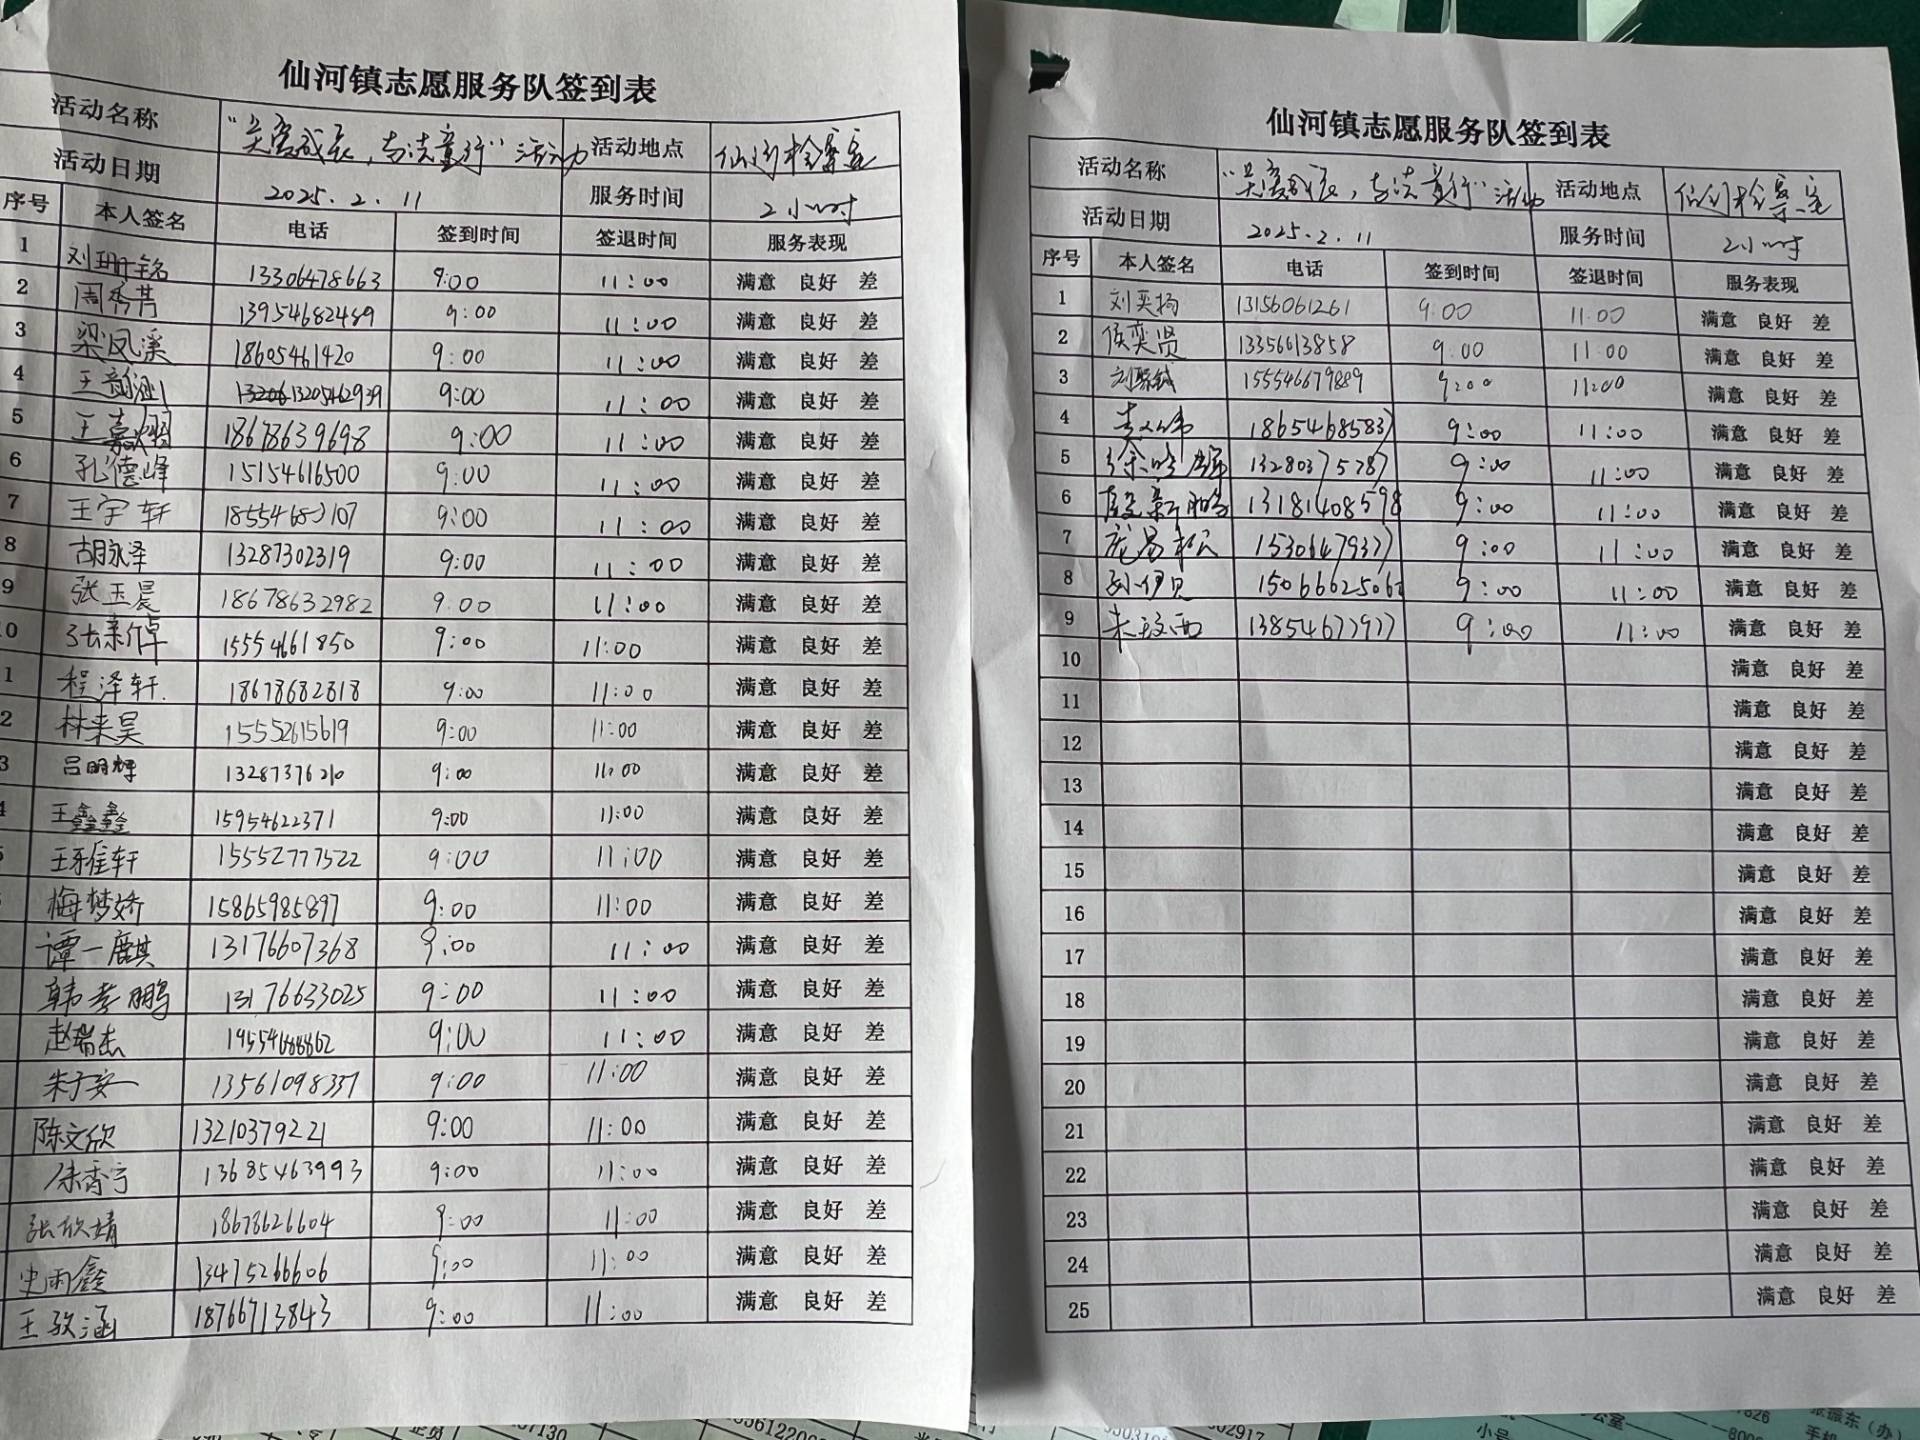 仙河镇志愿服务队签到表
活动名称 “关爱成长，与法童行”活动 活动地点 仙河检察室
活动日期 2025.2.11 服务时间 2小时
序号 本人签名 电话 签到时间 签退时间 服务表现
1 刘珊铭 13306478663 9:00 11:00 满意 良好 差
2 周秀菁 13954682489 9:00 11:00 满意 良好 差
3 梁凤溪 18605461420 9:00 11:00 满意 良好 差
4 王韵涵 13205462939 9:00 11:00 满意 良好 差
5 王嘉熠 18678639698 9:00 11:00 满意 良好 差
6 孔德峰 15154616500 9:00 11:00 满意 良好 差
7 王宇轩 9:00 11:00 满意 良好 差
8 胡脉泽 13287302319 9:00 11:00 满意 良好 差
9 张玉晨 18678632982 9:00 11:00 满意 良好 差
0 张亲倬 15554661850 9:00 11:00 满意 良好 差
1 程泽轩 18678682818 9:00 11:00 满意 良好 差
2 林来昊 15552615619 9:00 11:00 满意 良好 差
3 吕明辉 13287376210 9:00 11:00 满意 良好 差
4 王鑫鑫 15954622371 9:00 11:00 满意 良好 差
5 王雅轩 15552777522 9:00 11:00 满意 良好 差
梅梦娇 15865985897 9:00 11:00 满意 良好 差
谭一麒 13176607368 9:00 11:00 满意 良好 差
韩孝鹏 13176633025 9:00 11:00 满意 良好 差
赵瑞杰 9:00 11:00 满意 良好 差
朱子安 13561098337 9:00 11:00 满意 良好 差
陈文欣 13210379221 9:00 11:00 满意 良好 差
徐齐宁 13685463993 9:00 11:00 满意 良好 差
张欣靖 18678626604 9:00 11:00 满意 良好 差
史雨鑫 13475266606 9:00 11:00 满意 良好 差
王孜涵 18766713843 9:00 11:00 满意 良好 差
仙河镇志愿服务队签到表
活动名称 “关爱成长，与法童行”活动 活动地点 仙河检察室
活动日期 2025.2.11 服务时间 2小时
序号 本人签名 电话 签到时间 签退时间 服务表现
1 刘英扬 13156061261 9:00 11:00 满意 良好 差
2 侯奕贤 13356613858 9:00 11:00 满意 良好 差
3 155546679889 9:00 11:00 满意 良好 差
4 18654685837 9:00 11:00 满意 良好 差
5 徐晓辉 13280375787 9:00 11:00 满意 良好 差
6 薛新鹏 13181408598 9:00 11:00 满意 良好 差
7 庞易松 15306479377 9:00 11:00 满意 良好 差
8 孙伊贝 9:00 11:00 满意 良好 差
9 朱玟西 13854677977 9:00 11:00 满意 良好 差
10 满意 良好 差
11 满意 良好 差
12 满意 良好 差
13 满意 良好 差
14 满意 良好 差
15 满意 良好 差
16 满意 良好 差
17 满意 良好 差
18 满意 良好 差
19 满意 良好 差
20 满意 良好 差
21 满意 良好 差
22 满意 良好 差
23 满意 良好 差
24 满意 良好 差
25 满意 良好 差